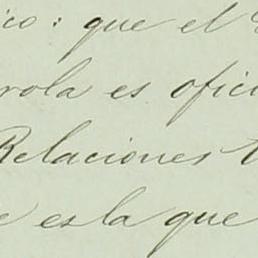 ico: que el
rola es ofici
Relaciones
e es la que